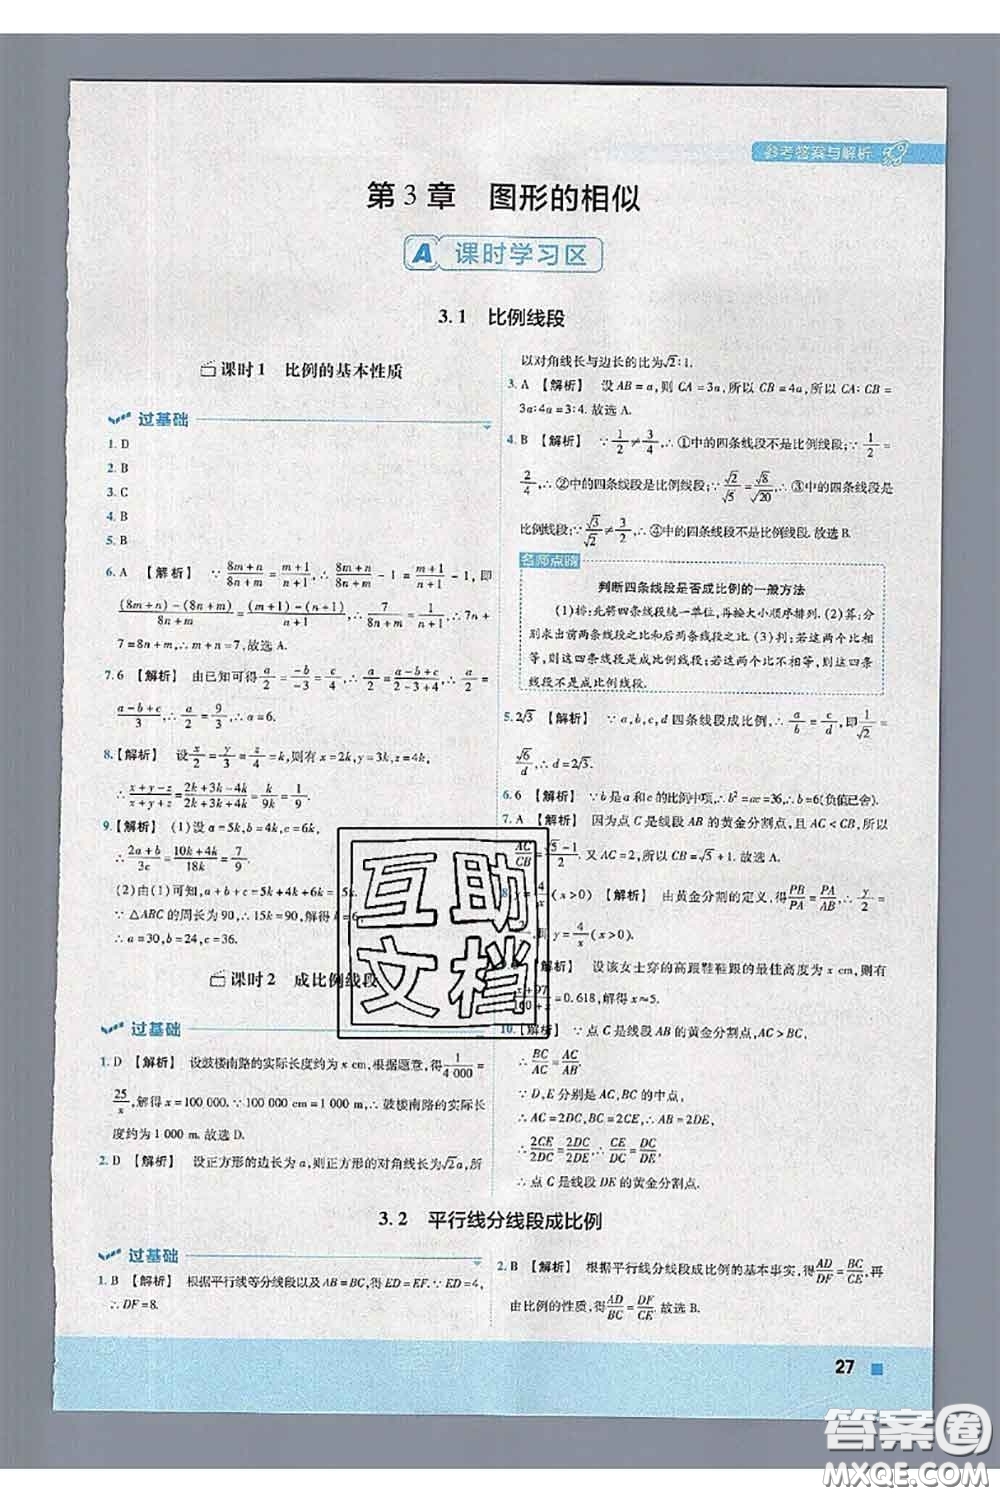 参考答案与解析
第3章 图形的相似
A 课时学习区
3.1 比例线段
课时1 比例的基本性质
过基础
1. D
2. B
3. C
4. B
5. B
6. A 【解析】 ∵ (8m+n)/(8n+m) = (m+1)/(n+1), ∴ (8m+n)/(8n+m) - 1 = (m+1)/(n+1) - 1, 即
((8m+n)-(8n+m))/(8n+m) = ((m+1)-(n+1))/(n+1), ∴ 7/(8n+m) = 1/(n+1), ∴ 7n+
7=8n+m, ∴ m+n=7, 故选 A.
7. 6 【解析】 由已知可得 a/2 = (-b)/(-3) = c/4, ∴ a/2 = (a-b+c)/(2-3+4), ∴ a/2 =
(a-b+c)/3, ∴ a/2 = 9/3, ∴ a=6.
8.【解析】 设 x/2 = y/3 = z/4 = k, 则有 x=2k, y=3k, z=4k,
∴ (x+y-z)/(x+y+z) = (2k+3k-4k)/(2k+3k+4k) = k/9k = 1/9.
9.【解析】 (1)设 a=5k, b=4k, c=6k,
∴ (2a+b)/3c = (10k+4k)/18k = 7/9.
(2)由(1)可知, a+b+c=5k+4k+6k=15k.
∵ △ABC 的周长为 90, ∴ 15k=90, 解得 k=6,
∴ a=30, b=24, c=36.
课时2 成比例线段
过基础
1. D 【解析】 设鼓楼南路的实际长度约为 x cm, 根据题意, 得 1/4 000 =
25/x, 解得 x=100 000. ∵ 100 000 cm=1 000 m, ∴ 鼓楼南路的实际长
度约为 1 000 m. 故选 D.
2. D 【解析】 设正方形的边长为 a, 则正方形的对角线长为√2a, 所
以对角线长与边长的比为√2∶1.
3. A 【解析】 设 AB=a, 则 CA=3a, 所以 CB=4a, 所以 CA∶CB=
3a∶4a=3∶4. 故选 A.
4. B 【解析】 ∵ 1/2 ≠ 3/4, ∴ ①中的四条线段不是比例线段; ∵ 1/2 =
2/4, ∴ ②中的四条线段是比例线段; ∵ √2/√5 = √8/√20, ∴ ③中的四条线段是
比例线段; ∵ √3/√2 ≠ 3/2, ∴ ④中的四条线段不是比例线段. 故选 B.
名师点睛
判断四条线段是否成比例的一般方法
(1)排:先将四条线段统一单位,再按大小顺序排列. (2)算:分
别求出前两条线段之比和后两条线段之比. (3)判:若这两个比相
等,则这四条线段是成比例线段;若这两个比不相等,则这四条
线段不是成比例线段.
5. 2√3 【解析】 ∵ a, b, c, d 四条线段成比例, ∴ a/b = c/d, 即 1/√2 =
√6/d, ∴ d=2√3.
6. 6 【解析】 ∵ b 是 a 和 c 的比例中项, ∴ b²=ac=36, ∴ b=6(负值已舍).
7. A 【解析】 因为点 C 是线段 AB 的黄金分割点, 且 AC<CB, 所以
AC/CB = (√5-1)/2. 又 AC=2, 所以 CB=√5+1. 故选 A.
8. y=4/x (x>0) 【解析】 由黄金分割的定义, 得 PB/PA = PA/AB, ∴ y/2 =
, 即 y=4/x (x>0).
【解析】 设该女士穿的高跟鞋鞋跟的最佳高度为 x cm, 则有
(x+97)/(160+x) = 0.618, 解得 x≈5.
10.【解析】 ∵ 点 C 是线段 AB 的黄金分割点, AC>BC,
∴ BC/AC = AC/AB.
∵ D, E 分别是 AC, BC 的中点,
∴ AC=2DC, BC=2CE, ∴ AB=2DE,
∴ 2CE/2DC = 2DC/2DE, ∴ CE/DC = DC/DE,
∴ 点 C 是线段 DE 的黄金分割点.
3.2 平行线分线段成比例
过基础
1. B 【解析】 根据平行线等分线段以及 AB=BC, 得 ED=EF. ∵ ED=4,
∴ DF=8.
2. B 【解析】 根据平行线分线段成比例的基本事实, 得 AD/DF = BC/CE, 再
由比例的性质, 得 AD/BC = DF/CE. 故选 B.
27
互助
文档
答案圈
MXQE.COM